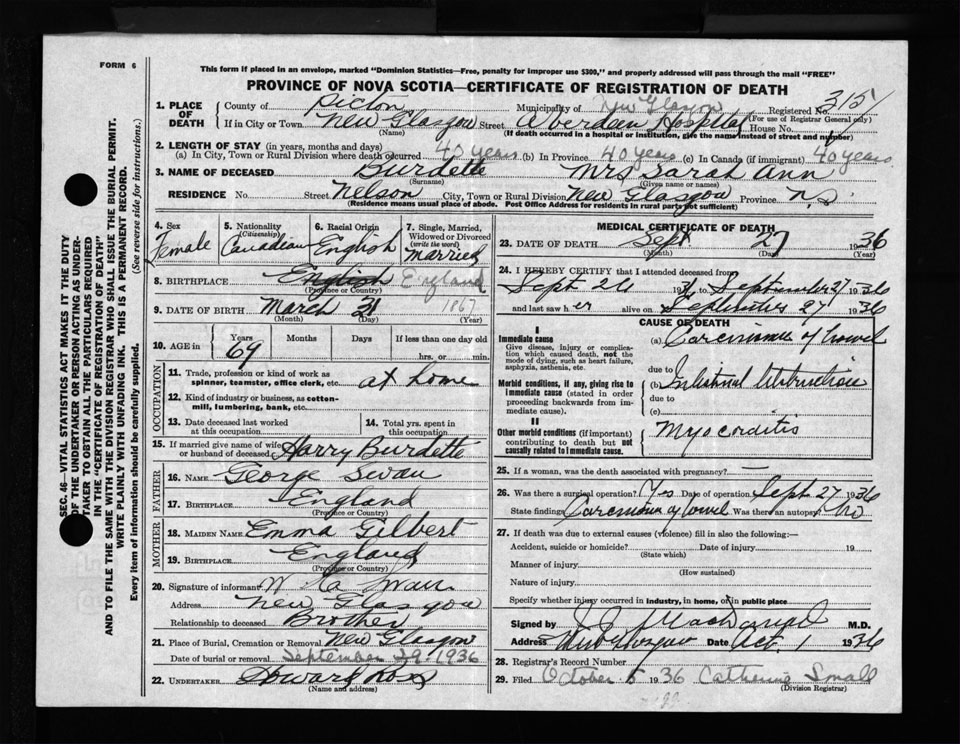 FORM 6
This form if placed in an envelope, marked "Dominion Statistics—Free, penalty for improper use $300," and properly addressed will pass through the mail "FREE"
PROVINCE OF NOVA SCOTIA—CERTIFICATE OF REGISTRATION OF DEATH
1. PLACE OF DEATH County of Pictou Municipality of New Glasgow Registered No. 315
If in City or Town New Glasgow Street Aberdeen Hospital House No. (For use of Registrar General only)
(Name) (If death occurred in a hospital or institution, give the name instead of street and number)
2. LENGTH OF STAY (in years, months and days)
(a) In City, Town or Rural Division where death occurred 40 years (b) In Province 40 years (c) In Canada (if immigrant) 40 years
3. NAME OF DECEASED Burdette Mrs Sarah Ann
(Surname) (Given name or names)
RESIDENCE No. Street Nelson City, Town or Rural Division New Glasgow Province N.S
(Residence means usual place of abode. Post Office Address for residents in rural parts not sufficient)
4. Sex Female
5. Nationality (Citizenship) Canadian
6. Racial Origin English
7. Single, Married, Widowed or Divorced (write the word) Married
8. BIRTHPLACE English England
(Province or Country)
9. DATE OF BIRTH March 21 1867
(Month) (Day) (Year)
10. AGE in Years Months Days If less than one day old
69 hrs. or min.
OCCUPATION
11. Trade, profession or kind of work as spinner, teamster, office clerk, etc. at home
12. Kind of industry or business, as cotton-mill, lumbering, bank, etc.
13. Date deceased last worked at this occupation
14. Total yrs. spent in this occupation
15. If married give name of wife or husband of deceased Harry Burdette
FATHER
16. NAME George Swan
17. BIRTHPLACE England
(Province or Country)
MOTHER
18. MAIDEN NAME Emma Gilbert
19. BIRTHPLACE England
(Province or Country)
20. Signature of informant Swan
Address New Glasgow
Relationship to deceased Brother
21. Place of Burial, Cremation or Removal New Glasgow
Date of burial or removal September 29 1936
22. UNDERTAKER Howard Ross
(Name and address)
MEDICAL CERTIFICATE OF DEATH
23. DATE OF DEATH Sept 27 1936
(Month) (Day) (Year)
24. I HEREBY CERTIFY that I attended deceased from
Sept 26 1936 to September 27 1936
and last saw her alive on September 27 1936
CAUSE OF DEATH
I
Immediate cause
Give disease, injury or complication which caused death, not the mode of dying, such as heart failure, asphyxia, asthenia, etc.
(a) Carcinoma of bowel
due to
Morbid conditions, if any, giving rise to immediate cause (stated in order proceeding backwards from immediate cause).
(b) Intestinal Obstruction
due to
(c)
II
Other morbid conditions (if important) contributing to death but not causally related to immediate cause.
Myocarditis
25. If a woman, was the death associated with pregnancy? —
26. Was there a surgical operation? Yes Date of operation Sept 27 1936
State findings Carcinoma of bowel Was there an autopsy? No
27. If death was due to external causes (violence) fill in also the following:—
Accident, suicide or homicide? Date of injury 19
(State which)
Manner of injury
(How sustained)
Nature of injury
Specify whether injury occurred in industry, in home, or in public place
Signed by M.D.
Address New Glasgow Date Oct. 1 1936
28. Registrar's Record Number
29. Filed October 5 1936 Catherine Small
(Division Registrar)
SEC. 46—VITAL STATISTICS ACT MAKES IT THE DUTY
OF THE UNDERTAKER OR PERSON ACTING AS UNDER-
TAKER TO OBTAIN ALL THE PARTICULARS REQUIRED
IN THE "CERTIFICATE OF REGISTRATION OF DEATH"
AND TO FILE THE SAME WITH THE DIVISION REGISTRAR WHO SHALL ISSUE THE BURIAL PERMIT.
WRITE PLAINLY WITH UNFADING INK. THIS IS A PERMANENT RECORD.
Every item of information should be carefully supplied. (See reverse side for instructions.)